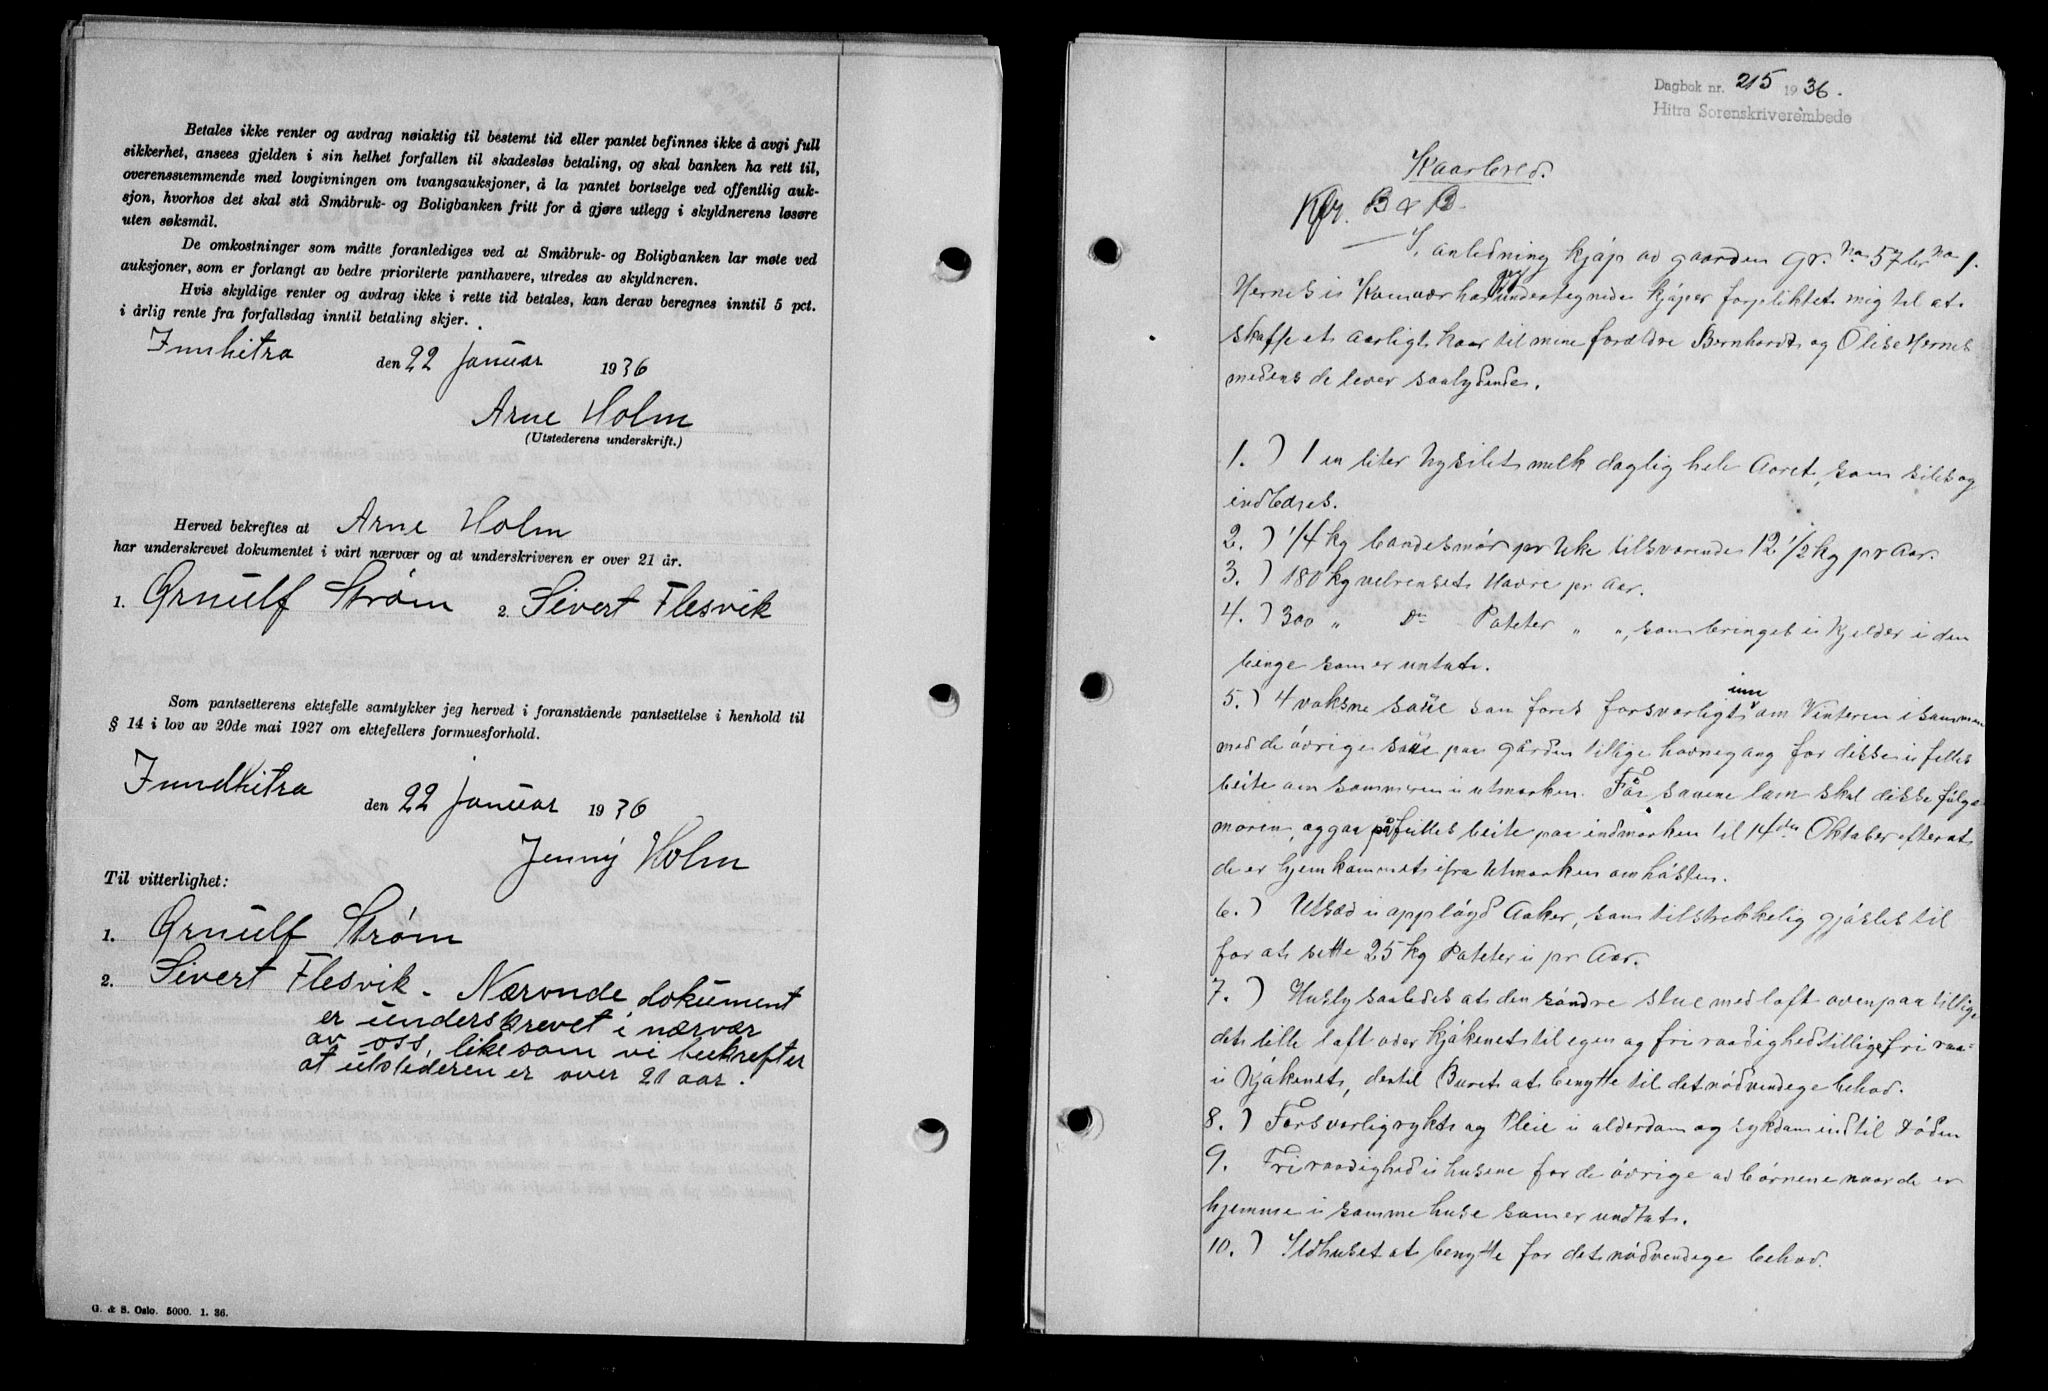 Betales ikke renter og avdrag nøiaktig til bestemt tid eller pantet befinnes ikke å avgi full
sikkerhet, ansees gjelden i sin helhet forfallen til skadesløs betaling, og skal banken ha rett til,
overensstemmende med lovgivningen om tvangsauksjoner, å la pantet bortselge ved offentlig auk-
sjon, hvorhos det skal stå Småbruk- og Boligbanken fritt for å gjøre utlegg i skyldnerens løsøre
uten søksmål.
De omkostninger som måtte foranlediges ved at Småbruk- og Boligbanken lar møte ved
auksjoner, som er forlangt av bedre prioriterte panthavere, utredes av skyldneren.
Hvis skyldige renter og avdrag ikke i rette tid betales, kan derav beregnes inntil 5 pct.
i årlig rente fra forfallsdag inntil betaling skjer.
Innhitra den 22 januar 1936
Arne Holm
(Utstederens underskrift.)
Herved bekreftes at Arne Holm
har underskrevet dokumentet i vårt nærvær og at underskriveren er over 21 år.
1. Ørnulf Strøm 2. Sivert Flesvik
Som pantsetterens ektefelle samtykker jeg herved i foranstående pantsettelse i henhold til
§ 14 i lov av 20de mai 1927 om ektefellers formuesforhold.
Inndhitra den 22 januar 1936
Jenny Holm
Til vitterlighet:
1. Ørnulf Strøm
2. Sivert Flesvik - Nærvnde dokument
er underskrevet i nærvær
av oss, likesom vi bekrefter
at utstederen er over 21 aar.
G. & S. Oslo. 5000. 1. 36.
Dagbok nr. 215 1936.
Hitra Sorenskriverembede
Kaarbrev.
Kfr. B & B.
I anledning kjøp av gaarden gr. no 57 br no 1.
Hernes i Kvenvær har undertegnede kjøper forpliktet mig til at
skaffe et aarligt kaar til mine foreldre Bernhardt og Olise Hernes
medens de lever saalydende.
1.) 1 en liter nysilet melk daglig hele Aaret, som siles og
indbæres.
2.) 1/4 kg bondesmør pr Uke tilsvarende 12 1/2 kg pr Aar.
3.) 180 kg velrenset Havre pr Aar.
4.) 300 " Do Poteter " ", som bringes i kjelder i den
binge som er untat.
5.) 4 voksne saue som fores forsvarligt inn om Vinteren i sammen
med de øvrige saue paa gården tillige havnegang for disse i felles
beite om sommeren i utmarken. Får sauene lam skal disse følge
moren, og gaa på felles beite paa indmarken til 14den Oktober efter at
de er hjemkommet ifra Utmarken om høsten.
6.) Utsæd i oppløgd Aaker, som tilstrekkelig gjøsles til
for at sette 25 kg Poteter i pr Aar.
7.) Husly saaledes at den søndre stue med loft ovenpaa tillige
det lille loft over kjøkenet til egen og fri raadighed tillige fri raa-
i Kjøkenet, dertil Buret at benytte til det nødvendige behov.
8.) Forsvarlig rykt og Pleie i alderdom og sykdom indtil Døden
9. Fri raadighed i husene for de øvrige av børnene naar de er
hjemme i samme huse som er undtat.
10.) Ildhuset at benytte for det nødvendige behov.